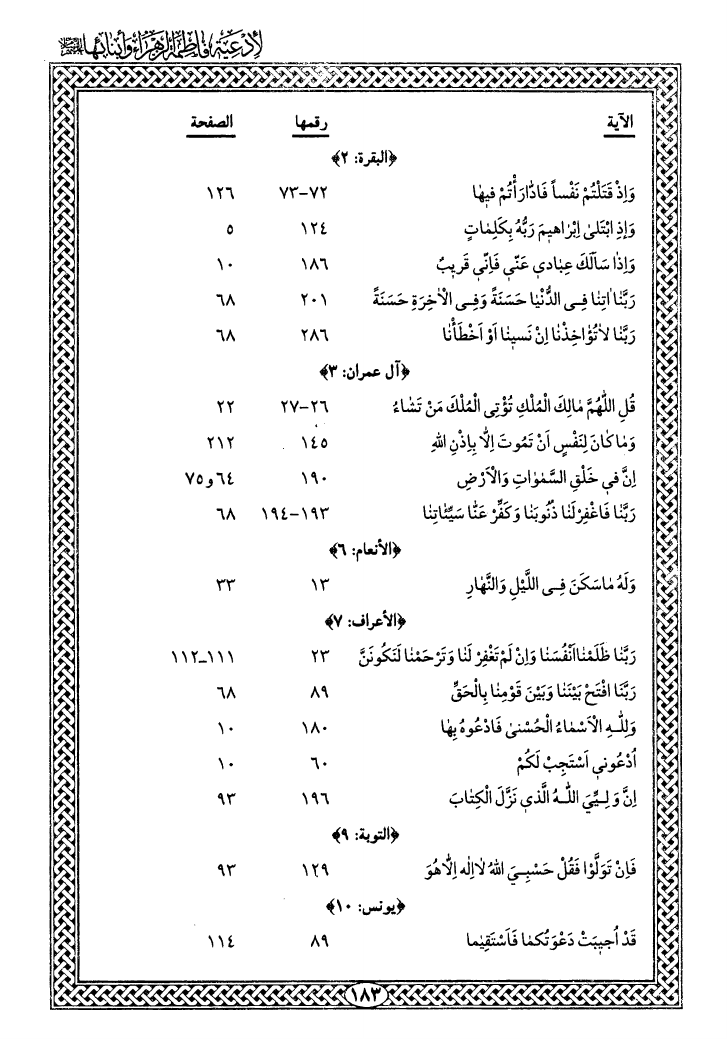 لأدعية فاطمة الزهراء وأبنائها
الآية رقمها الصفحة
﴿البقرة: ٢﴾
وَاِذْ قَتَلْتُمْ نَفْساً فَادّٰارَأْتُمْ فيهٰا ٧٢–٧٣ ١٢٦
وَاِذِ ابْتَلىٰ اِبْرٰاهيمَ رَبُّهُ بِكَلِمٰاتٍ ١٢٤ ٥
وَاِذٰا سَاَلَكَ عِبٰادي عَنّي فَاِنّي قَريبٌ ١٨٦ ١٠
رَبَّنٰا اٰتِنٰا فِي الدُّنْيٰا حَسَنَةً وَفِي الْاٰخِرَةِ حَسَنَةً ٢٠١ ٦٨
رَبَّنٰا لاٰتُؤٰاخِذْنٰا اِنْ نَسينٰا اَوْ اَخْطَأْنٰا ٢٨٦ ٦٨
﴿آل عمران: ٣﴾
قُلِ اللّٰهُمَّ مٰالِكَ الْمُلْكِ تُؤْتِي الْمُلْكَ مَنْ تَشٰاءُ ٢٦–٢٧ ٢٢
وَمٰا كٰانَ لِنَفْسٍ اَنْ تَمُوتَ اِلاّٰ بِاِذْنِ اللهِ ١٤٥ ٢١٢
اِنَّ في خَلْقِ السَّمٰوٰاتِ وَالْاَرْضِ ١٩٠ ٦٤ و ٧٥
رَبَّنٰا فَاغْفِرْلَنٰا ذُنُوبَنٰا وَكَفِّرْ عَنّٰا سَيِّئٰاتِنٰا ١٩٣–١٩٤ ٦٨
﴿الأنعام: ٦﴾
وَلَهُ مٰاسَكَنَ فِي اللَّيْلِ وَالنَّهٰارِ ١٣ ٣٣
﴿الأعراف: ٧﴾
رَبَّنٰا ظَلَمْنٰا اَنْفُسَنٰا وَاِنْ لَمْ تَغْفِرْ لَنٰا وَتَرْحَمْنٰا لَنَكُونَنَّ ٢٣ ١١١ـ١١٢
رَبَّنَا افْتَحْ بَيْنَنٰا وَبَيْنَ قَوْمِنٰا بِالْحَقِّ ٨٩ ٦٨
وَلِلّٰهِ الْاَسْمٰاءُ الْحُسْنىٰ فَادْعُوهُ بِهٰا ١٨٠ ١٠
اُدْعُوني اَسْتَجِبْ لَكُمْ ٦٠ ١٠
اِنَّ وَلِيِّيَ اللّٰهُ الَّذي نَزَّلَ الْكِتٰابَ ١٩٦ ٩٣
﴿التوبة: ٩﴾
فَاِنْ تَوَلَّوْا فَقُلْ حَسْبِيَ اللهُ لاٰاِلٰهَ اِلاّٰهُوَ ١٢٩ ٩٣
﴿يونس: ١٠﴾
قَدْ اُجيبَتْ دَعْوَتُكُمٰا فَاسْتَقيمٰا ٨٩ ١١٤
١٨٣